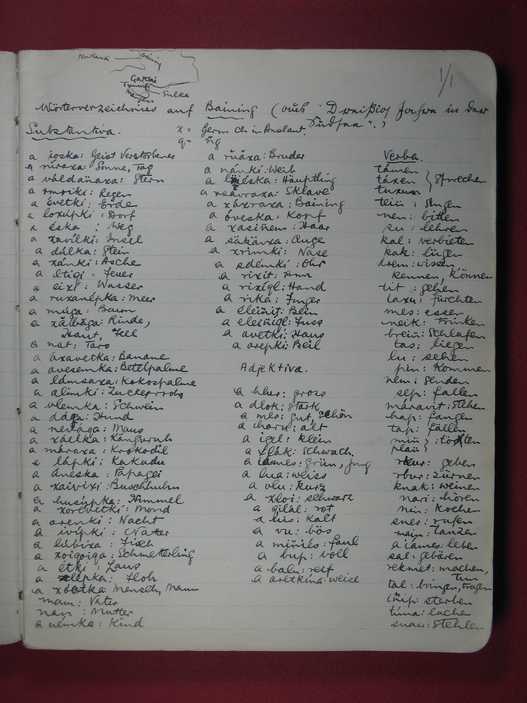 1/1
Gaktei
Sulka
Wörterverzeichnis auf Baining (aus "Dreißig Jahre in der Südsee".)
Substantiva.
x = Germ. ch in Anlaut.
g = ng
a ioska: Geist Verstorbenes
a niraxa: Sonne, Tag
a valdañaxa: Stern
a smeriki: Regen
a evetki: Erde
a loxupki: Dorf
a eska: Weg
a xavilki: Insel
a dulka: Stein
a xamki: Asche
a atigi: Feuer
a eixi: Wasser
a ruxanepka: Meer
a muga: Baum
a xalbaga: Rinde,
Haut, Fell
a nat: Taro
a axavetka: Banane
a avesemka: Betelpalme
a lamsaxa: Kokospalme
a alimki: Zuckerrohr
a vlemka: Schwein
a daga: Hund
a neraga: Maus
a xailka: Känguruh
a maraxa: Krokodil
a lapki: Kakadu
a aneska: Papagei
a xaivixi: Buschhuhn
a husupka: Himmel
a xorevetki: Mond
a arenki: Nacht
a ivipki: Natter
a lubixa: Fisch
a xoigoiga: Schmetterling
a etki: Laus
a elepka: Floh
a xboatka Mensch, Mann
mam: Vater
nan: Mutter
a uemka: Kind
a ruaxa: Bruder
a nanki: Weib
a luiska: Häuptling
a neavraxa: Sklave
a xaxraxa: Baining
a oveska: Kopf
a xasinem: Haar
a sakanxa: Auge
a xrimki: Nase
a sdemki: Ohr
a rixit: Arm
a rixigl: Hand
a rika: Finger
a eleinit: Bein
a eleinigl: Fuss
a avetki: Haus
a asepki: Beil
Adjektiva.
a hlur: gross
a dlok: stark
a mes: gut, schön
a horu: alt
a igel: klein
a xlak: Schwach
a iames: grün, jung
a hua: weiss
a vlu: kurz
a xloi: schwarz
a gilal: rot
a his: kalt
a vu: bös
a miniks: faul
a bup: voll
a balu: reif
a asetkina: weise
Verba.
tamen
taxen } Sprechen
tuxun
tein: Singen
nen: bitten
su: lehren
kal: verbieten
kak: lügen
drem: wissen
kennen, können
tit: gehen
laxu: fürchten
mes: essen
neik: trinken
brein: Schlafen
tas: liegen
lu: sehen
pin: Kommen
nem: Senden
sep: fallen
maravit: Stehen
hap: fangen
tap: fällen
miñ: töten
plau
rkus: geben
rbur: zürnen
knak: weinen
nari: hören
nin: Kochen
enes: rufen
nain: tanzen
a iames: leben
sal: gebären
rekmet: machen,
tun
tal: bringen, tragen
inip: sterben
tina: lachen
snau: Stehlen